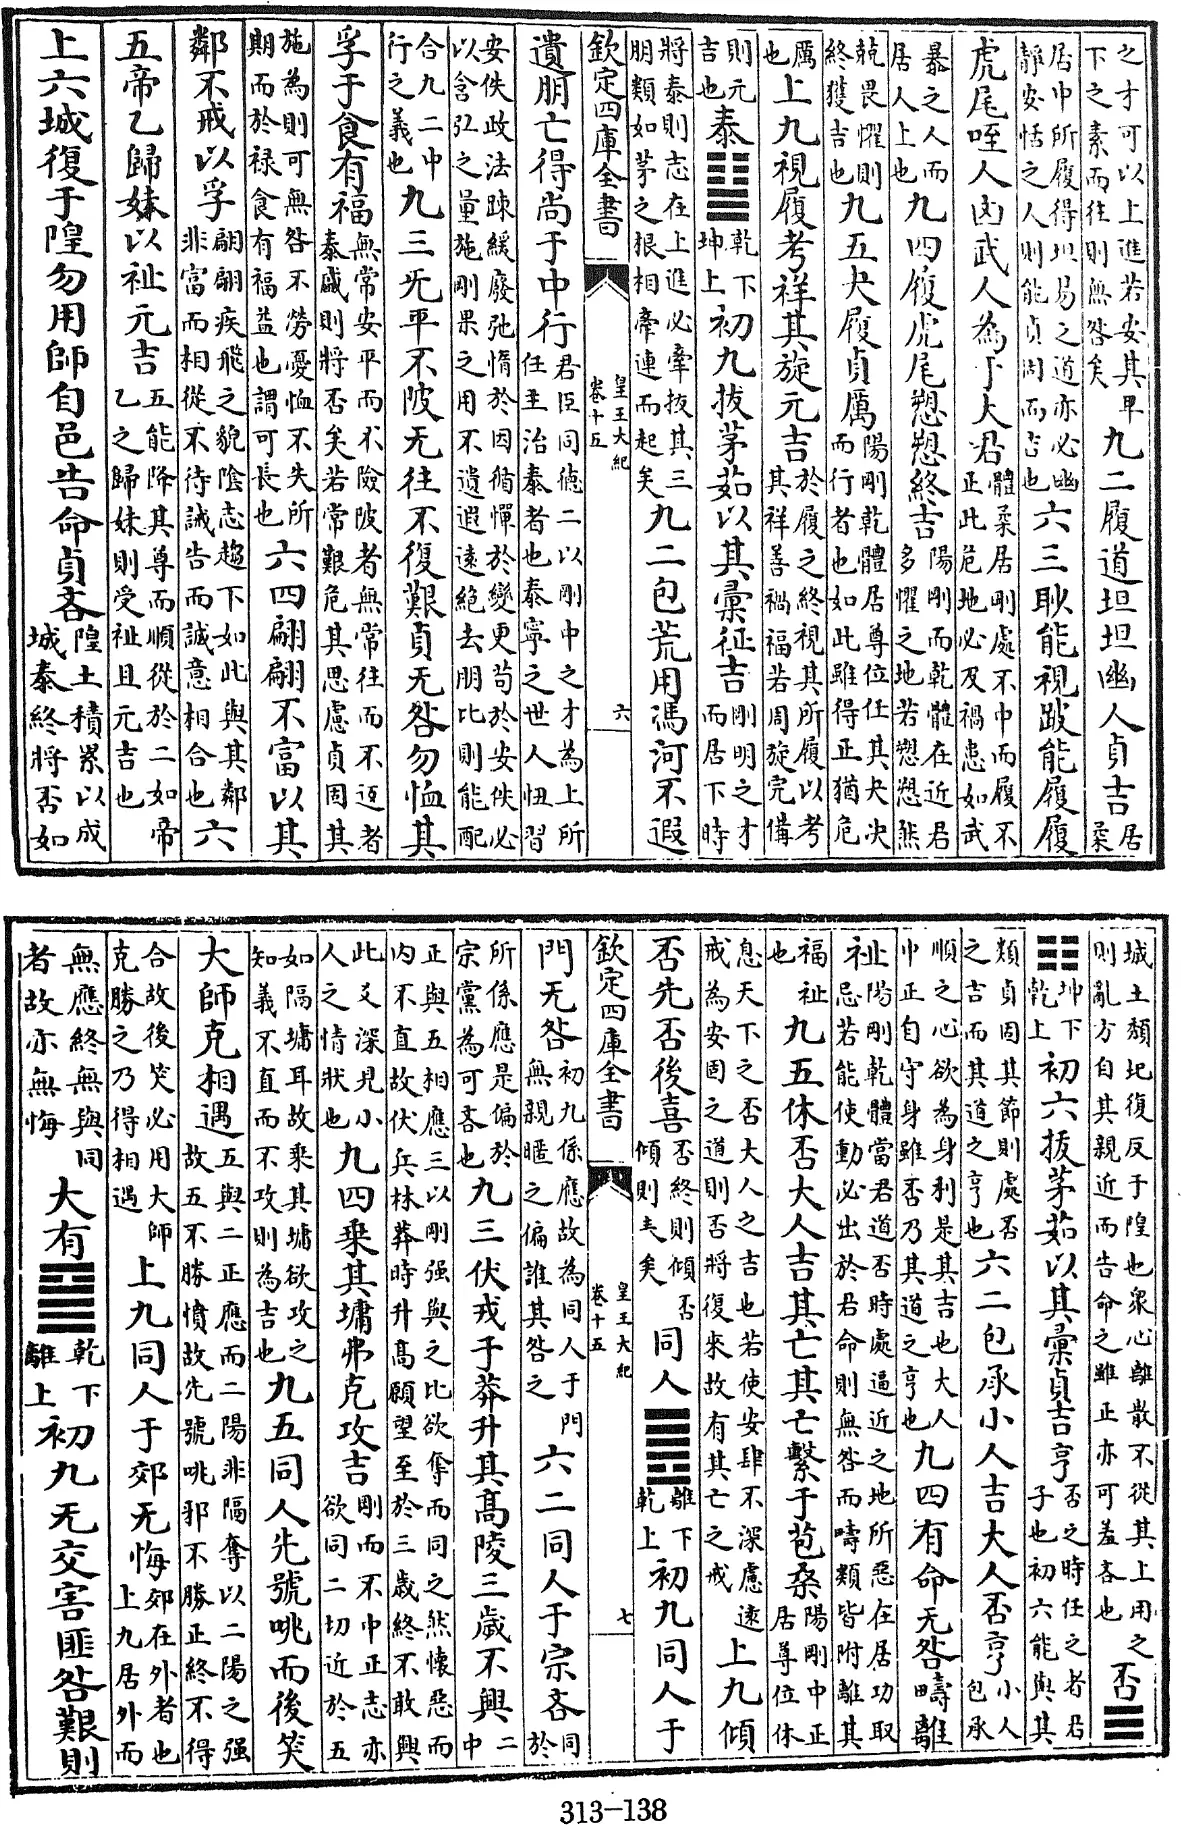 之才可以上進若安其卑下之素而往則無咎矣九二履道坦坦幽人貞吉居柔
居中所履得坦易之道亦必幽靜安恬之人則能貞固而吉也六三眇能視跛能履履
虎尾咥人凶武人為于大君體柔居剛處不中而履不正此危地必及禍患如武
暴之人而居人上也九四履虎尾愬愬終吉陽剛而乾體在近君多懼之地若愬愬然
兢畏懼則終獲吉也九五夬履貞厲陽剛乾體居尊位任其夬决而行者也如此雖得正猶危
厲也上九視履考祥其旋元吉於履之終視其所履以考其祥善禍福若周旋完備
則元吉也泰䷊乾下坤上初九拔茅茹以其彙征吉剛明之才而居下時
將泰則志在上進必牽拔其三朋類如茅之根相牽連而起矣九二包荒用馮河不遐
欽定四庫全書 皇王大紀 卷十五 六
遺朋亡得尚于中行君臣同德二以剛中之才為上所任主治泰者也泰寧之世人忸習
安佚政法踈緩廢弛惰於因循憚於變更苟於安佚必以含弘之量施剛果之用不遺遐遠絶去朋比則能配
合九二中行之義也九三无平不陂无往不復艱貞无咎勿恤其
孚于食有福無常安平而不險陂者無常往而不返者泰盛則將否矣若常艱危其思慮貞固其
施為則可無咎不勞憂恤不失所期而於禄食有福益也謂可長也六四翩翩不富以其
鄰不戒以孚翩翩疾飛之貌陰志趨下如此與其鄰非富而相從不待誡告而誠意相合也六
五帝乙歸妹以祉元吉五能降其尊而順從於二如帝乙之歸妹則受祉且元吉也
上六城復于隍勿用師自邑告命貞吝隍土積累以成城泰終將否如
城土頽圮復反于隍也衆心離散不從其上用之則亂方自其親近而告命之雖正亦可羞吝也否
䷋坤下乾上初六拔茅茹以其彙貞吉亨否之時任之者君子也初六能與其
類貞固其節則處否之吉而其道之亨也六二包承小人吉大人否亨小人包承
順之心欲為身利是其吉也大人中正自守身雖否乃其道之亨也九四有命无咎疇離
祉陽剛乾體當君道否時處逼近之地所惡在居功取忌若能使動必出於君命則無咎而疇類皆附離其
福祉也九五休否大人吉其亡其亡繫于苞桑陽剛中正居尊位休
息天下之否大人之吉也若使安肆不深慮遠戒為安固之道則否將復來故有其亡之戒上九傾
否先否後喜否終則傾否傾則喜矣同人䷌離下乾上初九同人于
欽定四庫全書 皇王大紀 卷十五 七
門无咎初九係應故為同人于門無親暱之偏誰其咎之六二同人于宗吝同於
所係應是偏於宗黨為可吝也九三伏戎于莽升其髙陵三歲不興二中
正與五相應三以剛强與之比欲奪而同之然懷惡而内不直故伏兵林莽時升髙願望至於三歲終不敢興
此爻深見小人之情狀也九四乘其墉弗克攻吉剛而不中正志亦欲同二切近於五
如隔墉耳故乘其墉欲攻之知義不直而不攻則為吉也九五同人先號咷而後笑
大師克相遇五與二正應而二陽非隔奪以二陽之强故五不勝憤故先號咷邪不勝正終不得
合故後笑必用大師克勝之乃得相遇上九同人于郊无悔郊在外者也上九居外而
無應終無與同者故亦無悔大有䷍乾下離上初九无交害匪咎艱則
313-138